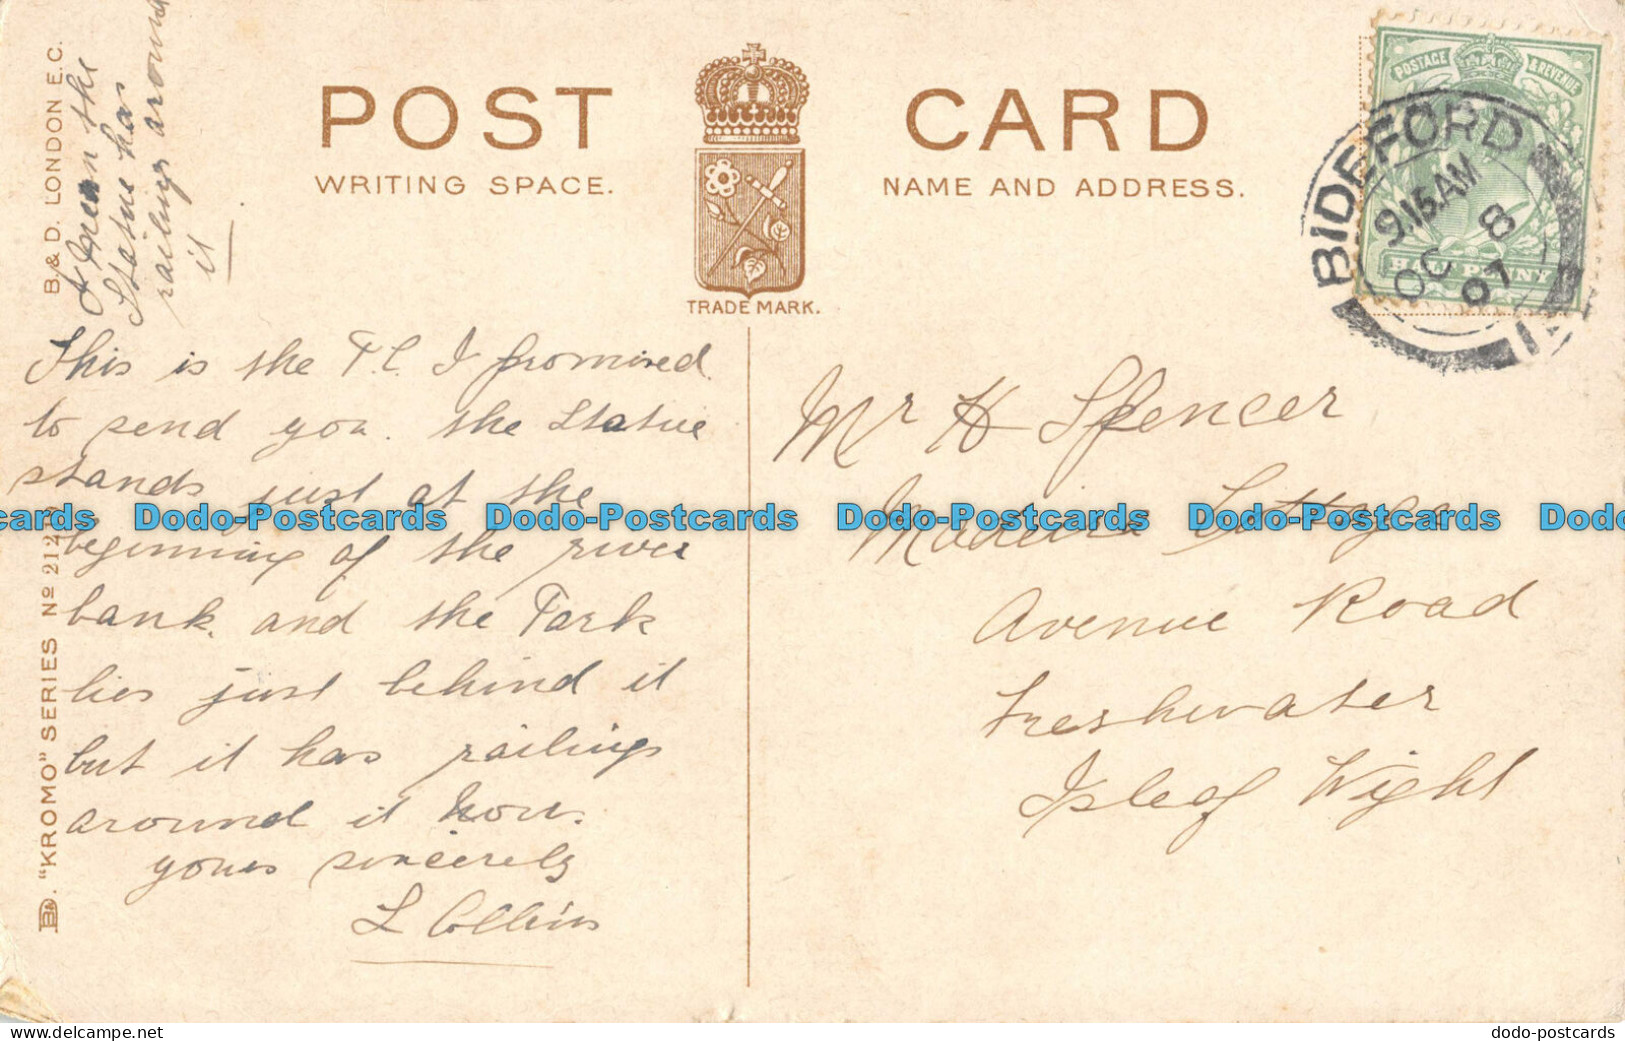 POST CARD
WRITING SPACE.
NAME AND ADDRESS.
TRADE MARK.
POSTAGE & REVENUE
HALF PENNY
BIDEFORD
9.15 AM
OC 8
07
B. & D. LONDON E.C.
"KROMO" SERIES No 212
I mean the
Statue has
railings around
it
This is the P.C. I promised
to send you. the Statue
stands just at the
beginning of the river
bank. and the Park
lies just behind it
but it has railings
around it now.
yours sincerely
L Collins
Mr H Spencer
Madeira Cottage
Avenue Road
Freshwater
Isle of Wight
cards Dodo-Postcards Dodo-Postcards Dodo-Postcards Dodo-Postcards Dodo
www.delcampe.net
dodo-postcards